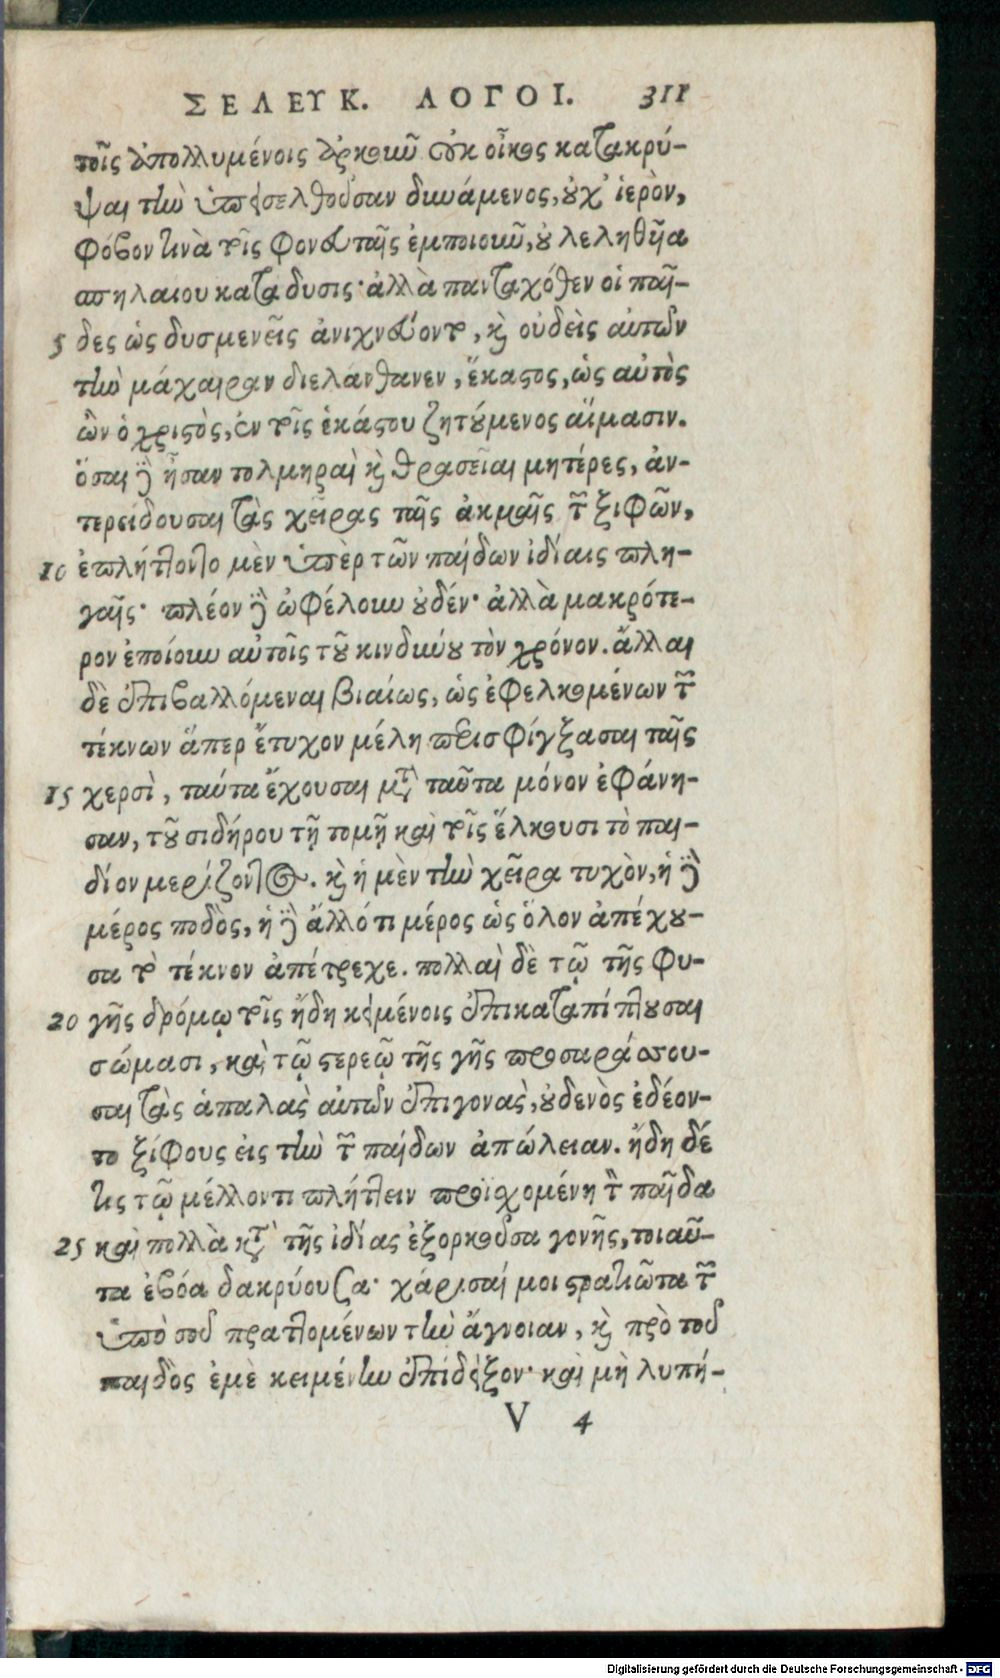 ΣΕΛΕΥΚ. ΛΟΓΟΙ. 311
τοῖς ἀπολλυμένοις ἀρκοῦν οὐκ οἶκος κατακρύ-
ψαι τὴν ὑπεισελθοῦσαν δυνάμενος, οὐχ' ἱερὸν,
φόβον τινὰ τοῖς φονευταῖς ἐμποιοῦν, οὐ λεληθῆα
σπηλαίου κατάδυσις· ἀλλὰ πανταχόθεν οἱ παῖ-
5 δες ὡς δυσμενεῖς ἀνιχνεύοντο, καὶ οὐδεὶς αὐτῶν
τὴν μάχαιραν διελάνθανεν, ἕκαστος, ὡς αὐτὸς
ὢν ὁ χριστὸς, ἐν τοῖς ἑκάστου ζητούμενος αἵμασιν.
ὅσαι δὲ ἦσαν τολμηραὶ καὶ θρασεῖαι μητέρες, ἀν-
τερείδουσαι τὰς χεῖρας ταῖς ἀκμαῖς τῶν ξιφῶν,
10 ἐπλήττοντο μὲν ὑπὲρ τῶν παίδων ἰδίαις πλη-
γαῖς· πλέον δὲ ὠφέλουν οὐδέν· ἀλλὰ μακρότε-
ρον ἐποίουν αὐτοῖς τοῦ κινδύνου τὸν χρόνον. ἄλλαι
δὲ ἐπιβαλλόμεναι βιαίως, ὡς ἐφελκομένων τῶν
τέκνων ἅπερ ἔτυχον μέλη περισφίγξασαι ταῖς
15 χερσὶ, ταῦτα ἔχουσαι μετὰ ταῦτα μόνον ἐφάνη-
σαν, τοῦ σιδήρου τῇ τομῇ καὶ τοῖς ἕλκουσι τὸ παι-
δίον μερίζοντος. καὶ ἡ μὲν τὴν χεῖρα τυχὸν, ἡ δὲ
μέρος ποδὸς, ἡ δὲ ἄλλό τι μέρος ὡς ὅλον ἀπέχου-
σα τὸ τέκνον ἀπέτρεχε. πολλαὶ δὲ τῷ τῆς φυ-
20 γῆς δρόμῳ τοῖς ἤδη κειμένοις ἐπικαταπίπτουσαι
σώμασι, καὶ τῷ στερεῷ τῆς γῆς προσαράσσου-
σαι τὰς ἁπαλὰς αὐτῶν ἐπιγονὰς, οὐδενὸς ἐδέον-
το ξίφους εἰς τὴν τῶν παίδων ἀπώλειαν. ἤδη δέ
τις τῷ μέλλοντι πλήττειν προϊσχομένη τὸν παῖδα
25 καὶ πολλὰ κατὰ τῆς ἰδίας ἐξορκοῦσα γονῆς, τοιαῦ-
τα ἐβόα δακρύουσα· χάρισαί μοι στρατιῶτα τῶν
ὑπὸ σοῦ πραττομένων τὴν ἄγνοιαν, καὶ πρὸ τοῦ
παιδὸς ἐμὲ κειμένην ἐπίδειξον· καὶ μὴ λυπή-
V 4
Digitalisierung gefördert durch die Deutsche Forschungsgemeinschaft - DFG